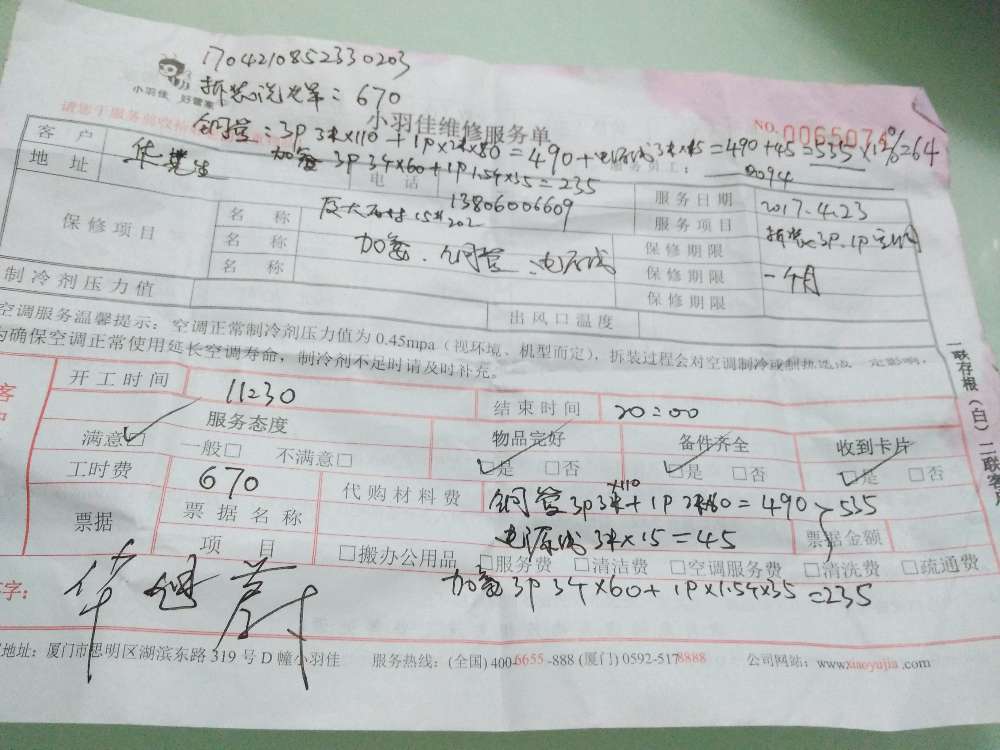 1704210852330203
小羽佳 好管家
拆装洗光单：670
小羽佳维修服务单
NO. 0065074
铜管：3P 3米×110 + 1P×2米×80 = 490 + 电源线3米×15 = 490+45=535 ×12%=64
加氨 3P 34×60+1P 1.54×35=235
客户
地址
电话 13806006609
服务员工： 0094
服务日期 2017.4.23
保修项目
名称
15#202
服务项目 拆装×3P、1P空调
名称 加氨、铜管、电源线
保修期限 一个月
名称
保修期限
保修期限
制冷剂压力值
出风口温度
空调服务温馨提示：空调正常制冷剂压力值为0.45mpa（视环境、机型而定），拆装过程会对空调制冷或制热造成一定影响，
为确保空调正常使用延长空调寿命，制冷剂不足时请及时补充。
开工时间 11:30
结束时间 20:00
服务态度 物品完好 备件齐全 收到卡片
满意□ 一般□ 不满意□ □是 □否 □是 □否 □是 □否
工时费 670
代购材料费 铜管3P3米×110+1P 2米80=490 > 535
电源线3米×15=45
票据
票据名称
票据金额
项目 □搬办公用品 □服务费 □清洁费 □空调服务费 □清洗费 □疏通费
加氨3P 34×60+1P×1.54×35=235
字：
地址：厦门市思明区湖滨东路319号D幢小羽佳 服务热线：(全国) 400-6655-888 (厦门) 0592-5178888 公司网站：www.xiaoyujia.com
一联存根（白）二联客